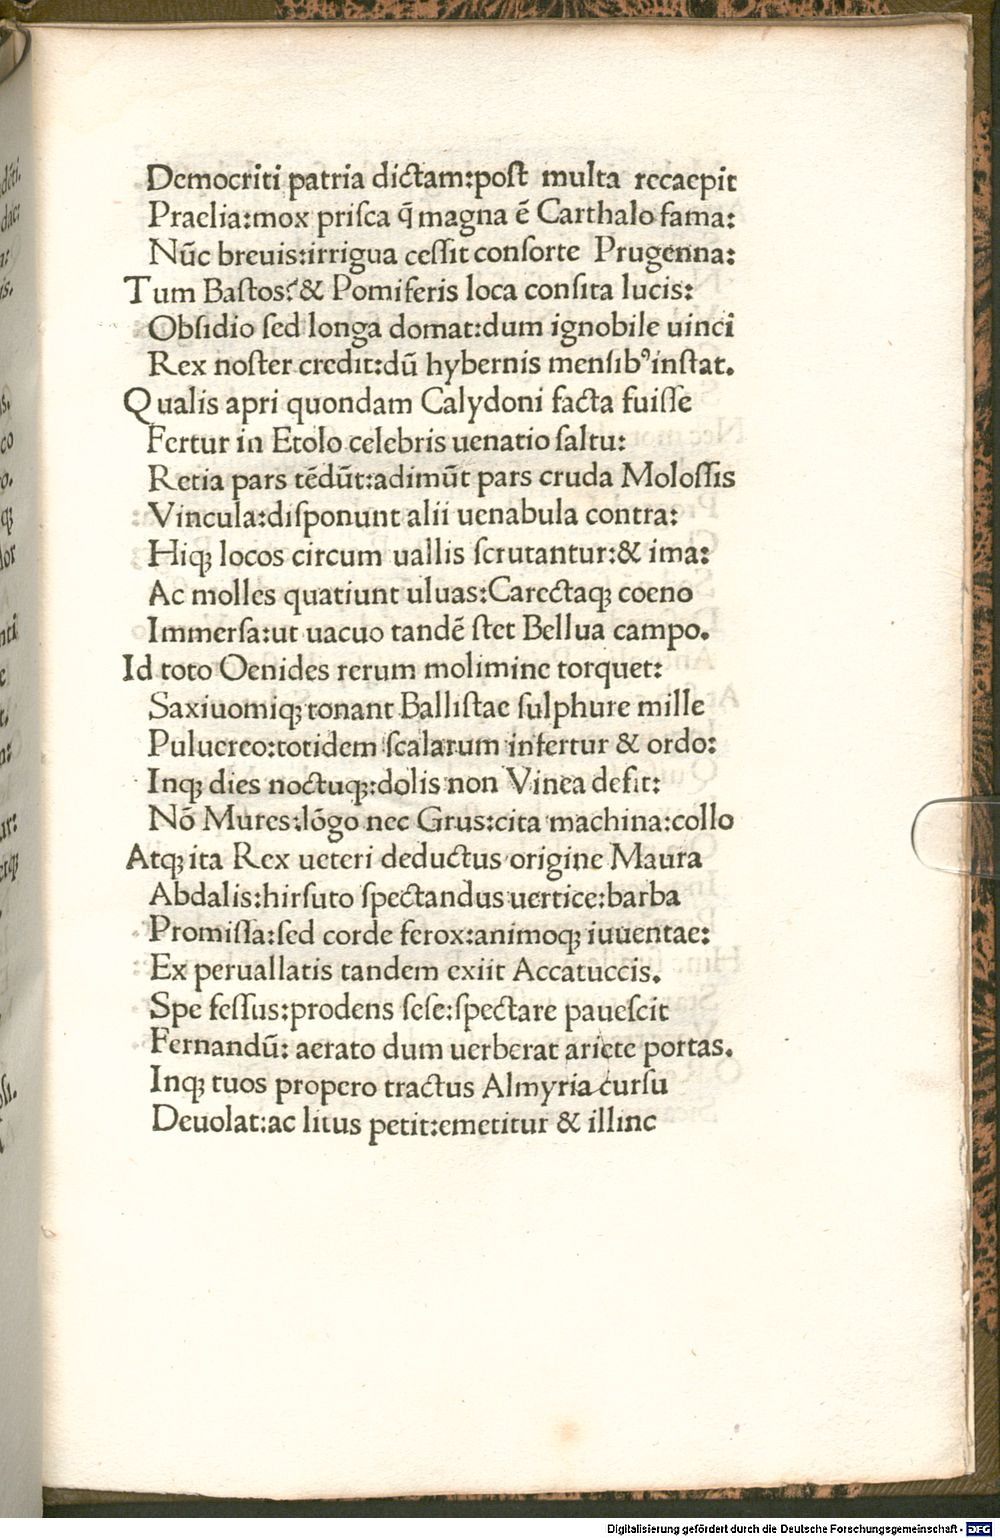 Democriti patria dictam:poſt multa recaepit
Praelia:mox priſca q̃ magna ē Carthalo fama:
Nūc breuis:irrigua ceſſit conſorte Prugenna:
Tum Baſtos:& Pomiferis loca conſita lucis:
Obſidio ſed longa domat:dum ignobile uinci
Rex noſter credit:dū hybernis menſibꝰ inſtat.
Qualis apri quondam Calydoni facta fuiſſe
Fertur in Etolo celebris uenatio ſaltu:
Retia pars tēdūt:adimūt pars cruda Moloſſis
Vincula:diſponunt alii uenabula contra:
Hiqꝫ locos circum uallis ſcrutantur:& ima:
Ac molles quatiunt uluas:Carectaqꝫ coeno
Immerſa:ut uacuo tandē ſtet Bellua campo.
Id toto Oenides rerum molimine torquet:
Saxiuomiqꝫ tonant Balliſtae ſulphure mille
Puluereo:totidem ſcalarum infertur & ordo:
Inqꝫ dies noctuqꝫ:dolis non Vinea defit:
Nō Mures:lōgo nec Grus:cita machina:collo
Atqꝫ ita Rex ueteri deductus origine Maura
Abdalis:hirſuto ſpectandus uertice:barba
Promiſſa:ſed corde ferox:animoqꝫ iuuentae:
Ex peruallatis tandem exiit Accatuccis.
Spe feſſus:prodens ſeſe:ſpectare paueſcit
Fernandū: aerato dum uerberat ariete portas.
Inqꝫ tuos propero tractus Almyria curſu
Deuolat:ac litus petit:emetitur & illinc
Digitalisierung gefördert durch die Deutsche Forschungsgemeinschaft - DFG